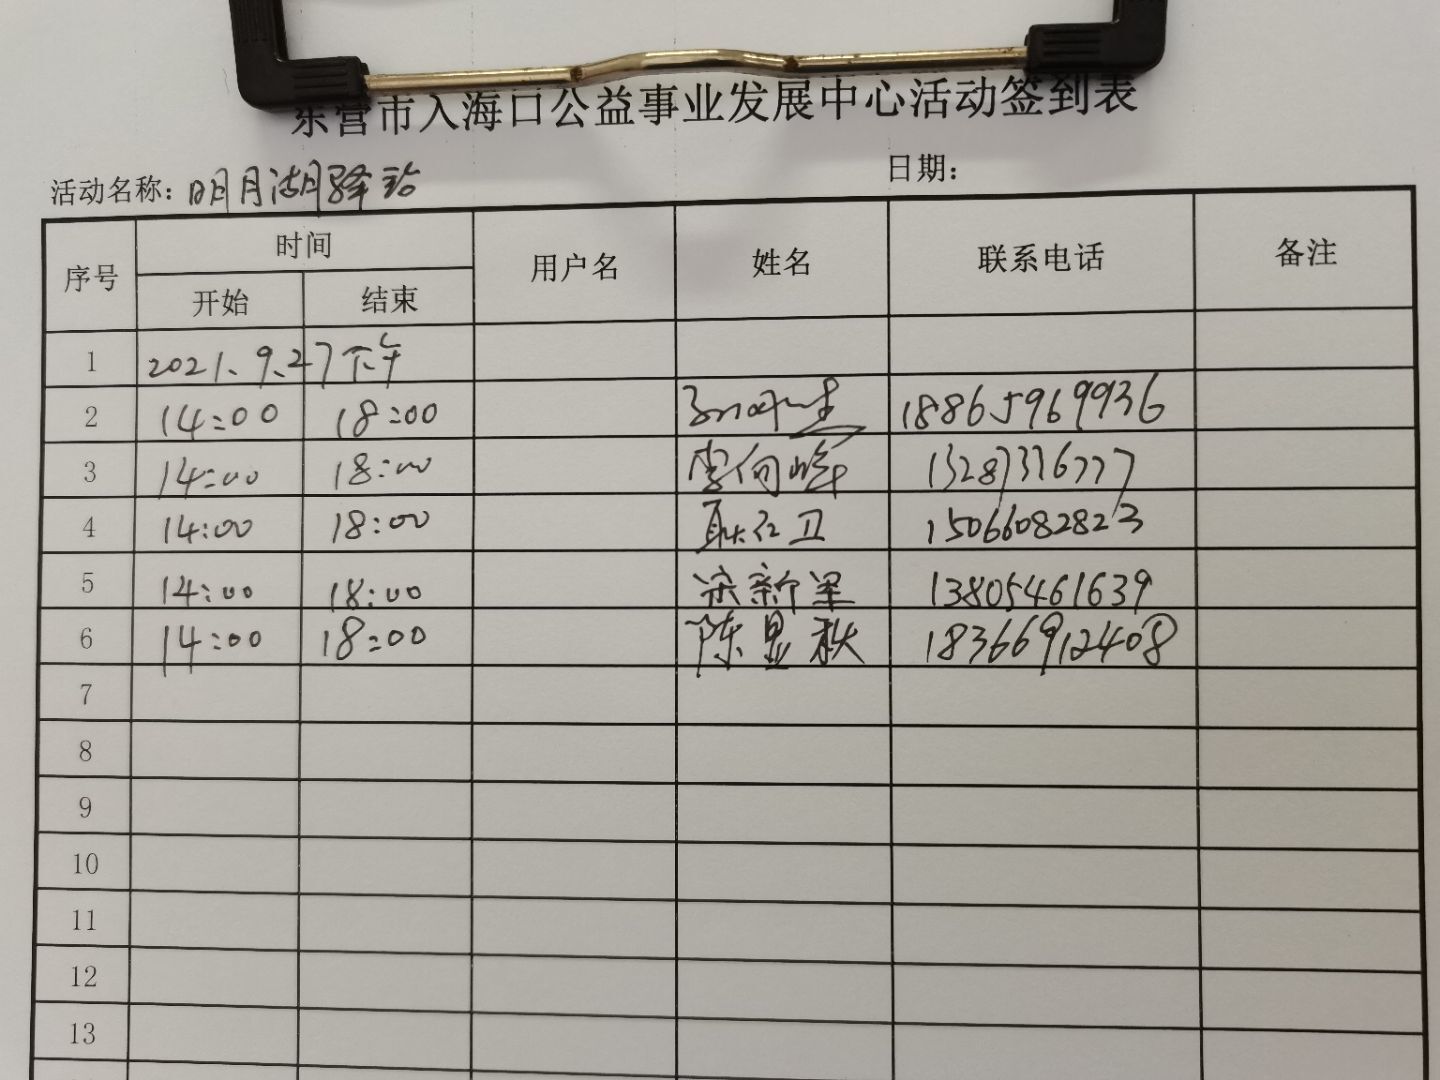 东营市入海口公益事业发展中心活动签到表
活动名称: 明月湖驿站 日期:
序号 时间 用户名 姓名 联系电话 备注
开始 结束
1 2021、9、27下午
2 14:00 18:00 18865969936
3 14:00 18:00 李向峰 13287316777
4 14:00 18:00 耿红卫 15066082823
5 14:00 18:00 新军 13805461639
6 14:00 18:00 陈显秋 18366912408
7
8
9
10
11
12
13